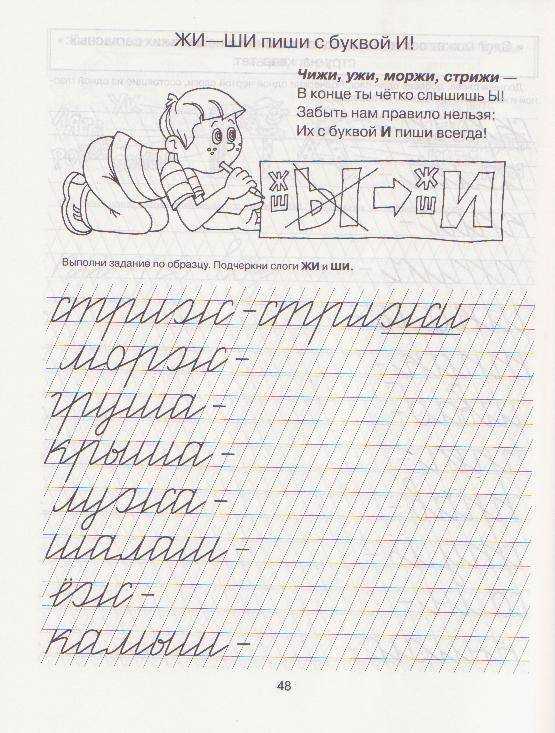 ЖИ—ШИ пиши с буквой И!
Чижи, ужи, моржи, стрижи —
В конце ты чётко слышишь Ы!
Забыть нам правило нельзя:
Их с буквой И пиши всегда!
Ж Ш Ы Ж Ш И
Выполни задание по образцу. Подчеркни слоги ЖИ и ШИ.
стриж - стрижи
морж -
груша -
крыша -
лужа -
шалаш -
ёж -
камыш -
48